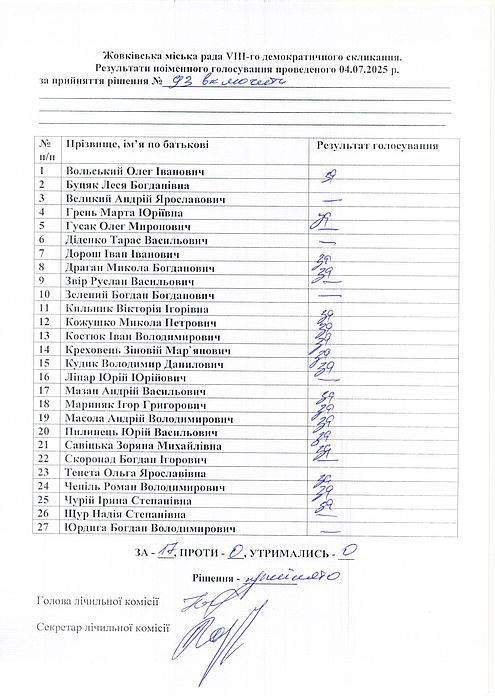 Жовківська міська рада VIII-го демократичного скликання.
Результати поіменного голосування проведеного 04.07.2025 р.
за прийняття рішення № 93 включити
№ п/п Прізвище, ім’я по батькові Результат голосування
1 Вольський Олег Іванович
2 Буцяк Леся Богданівна за
3 Великий Андрій Ярославович —
4 Грень Марта Юріївна
5 Гусак Олег Миронович за
6 Діденко Тарас Васильович —
7 Дорош Іван Іванович
8 Драган Микола Богданович за
9 Звір Руслан Васильович за
10 Зелений Богдан Богданович —
11 Кильник Вікторія Ігорівна
12 Кожушко Микола Петрович за
13 Костюк Іван Володимирович за
14 Креховець Зіновій Мар`янович за
15 Кудик Володимир Данилович за
16 Ліпар Юрій Юрійович —
17 Мазан Андрій Васильович
18 Мариняк Ігор Григорович за
19 Масола Андрій Володимирович за
20 Пилипець Юрій Васильович за
21 Савіцька Зоряна Михайлівна за
22 Скоропад Богдан Ігорович за
23 Тенета Ольга Ярославівна
24 Чепіль Роман Володимирович за
25 Чурій Ірина Степанівна за
26 Щур Надія Степанівна за
27 Юрдига Богдан Володимирович —
ЗА - 17, ПРОТИ - 0, УТРИМАЛИСЬ - 0
Рішення - прийнято
Голова лічильної комісії
Секретар лічильної комісії